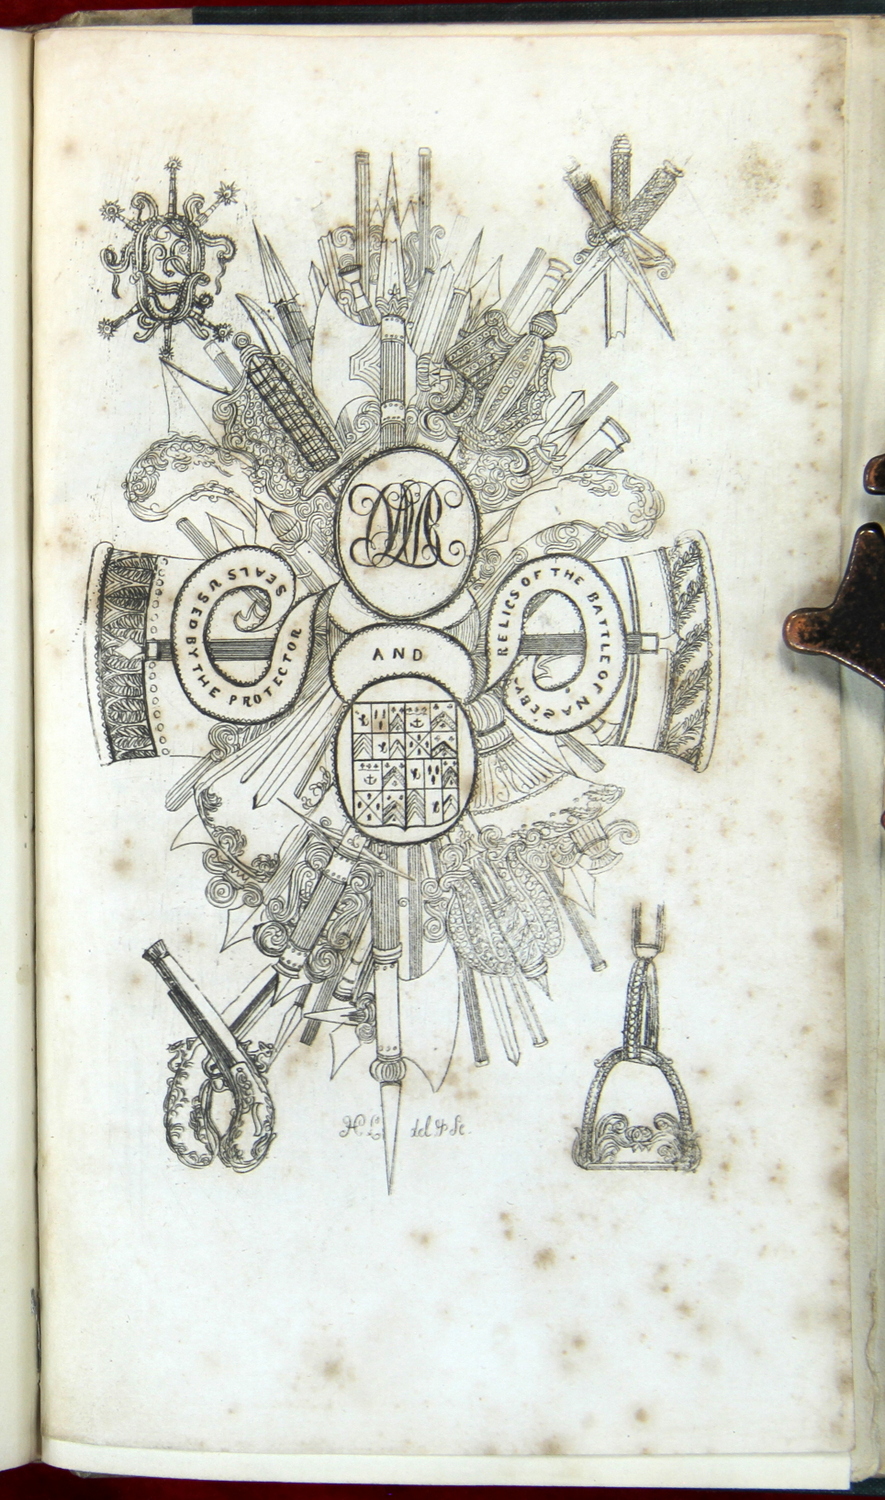 SEALS USED BY THE PROTECTOR
AND
RELICS OF THE BATTLE OF NASEBY
del & Sc.